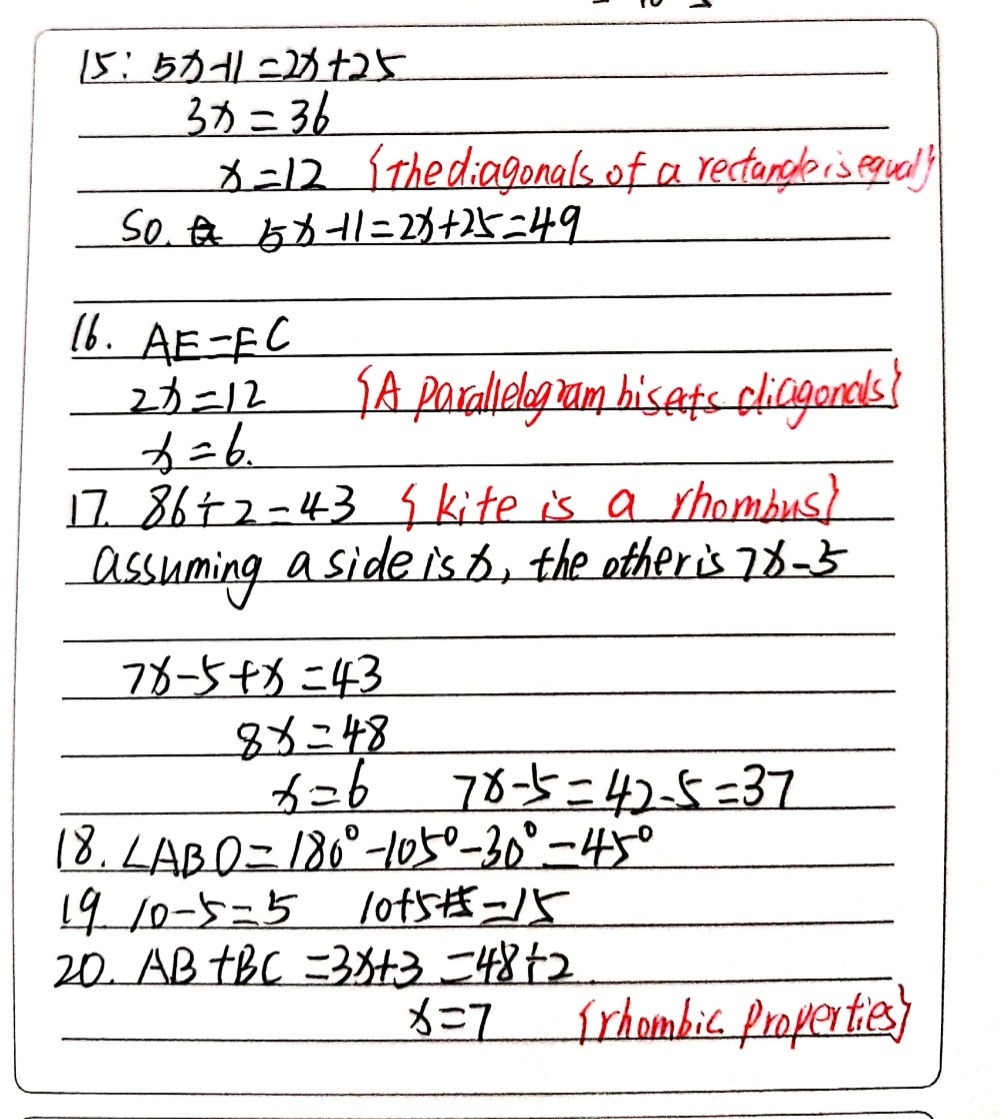 15: 5x-11=2x+25
3x=36
x=12 {The diagonals of a rectangle is equal}
So. 5x-11=2x+25=49
16. AE=EC
2x=12 {A parallelogram bisects diagonals}
x=6.
17. 86÷2=43 { kite is a rhombus}
assuming a side is x, the other is 7x-5
7x-5+x=43
8x=48
x=6 7x-5=42-5=37
18. ∠ABO=180°-105°-30°=45°
19 10-5=5 10+5=15
20. AB+BC=3x+3=48÷2
x=7 {rhombic properties}